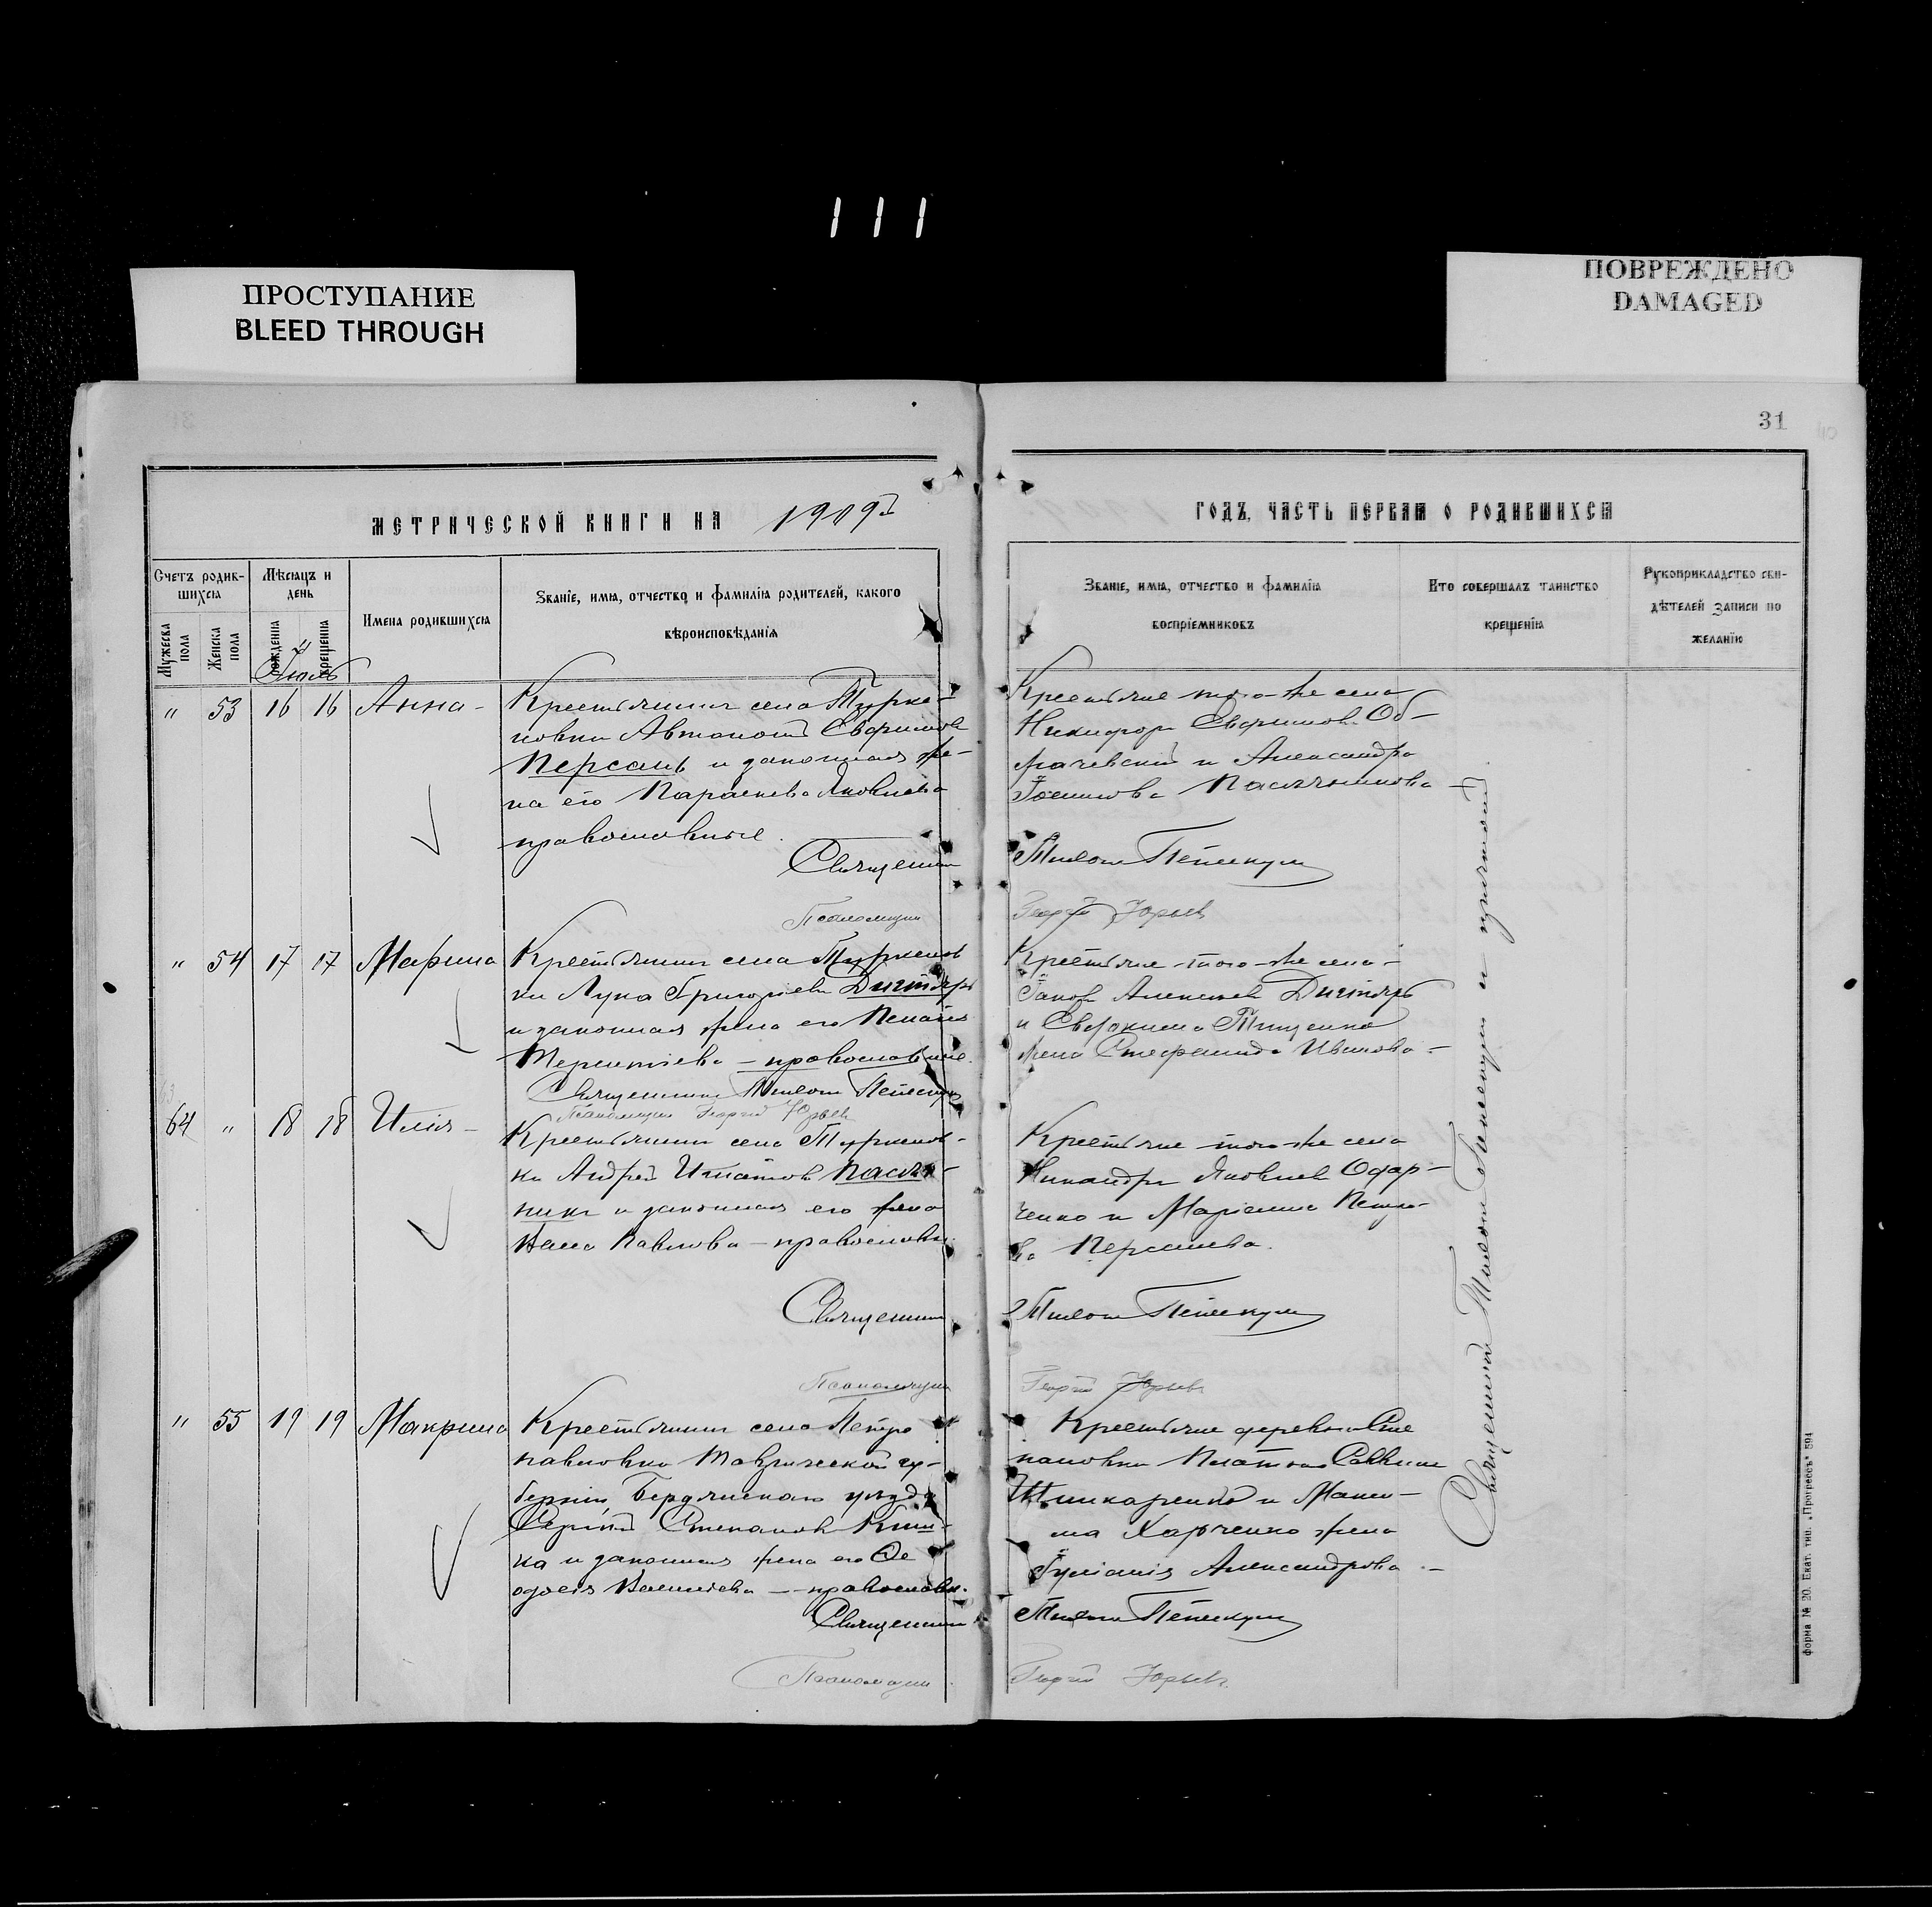 111
ПРОСТУПАНИЕ
BLEED THROUGH
ПОВРЕЖДЕНО
DAMAGED
31
МЕТРИЧЕСКОЙ КНИГИ НА 1909
ГОДЪ, ЧАСТЬ ПЕРВАЯ О РОДИВШИХСЯ
Счетъ родив-
шихся
Мужеска пола
Женска пола
Мѣсяцъ и
день
рожденія
крещенія
Имена родившихся
Званіе, имя, отчество и фамилія родителей, какого
вѣроисповѣданія
Званіе, имя, отчество и фамилія
воспріемниковъ
Кто совершалъ таинство
крещенія
Рукоприкладство сви-
дѣтелей записи по
желанію
Іюль
" 53 16 16 Анна -
Крестьянинъ села Турке-
новки Автоном Евфимов
Персань и законная же-
на его Параскева Яковлева
православные.
Священник
Псаломщик
Крестьяне того-же села
Никифор Евфимов Об-
мачевский и Александра
Пасечникова -
Георгій Юрьев
" 54 17 17 Марина
Крестьянинъ села Туркенов
ки Лука Григорьев Дигтярь
и законная жена его Пелагія
Терентіева - православные.
Священник
Псаломщик Георгій Юрьев
Крестьяне того-же села -
Іаков Алексіев Дигтярь
и Евдокима Тищенко
жена Стефанида Иванова -
64 " 18 18 Илія -
Крестьянинъ села Туркенов-
ки Андрей Игнатов Пасѣч-
никъ и законная его жена
Павлова - православн.
Священник
Псаломщик
Крестьяне того-же села
Никандр Яковлев Одар-
ченко и Маріанна Петро-
ва Персанева.
Георгій Юрьев
" 55 19 19 Макрина
Крестьянинъ села Петро
павловки Таврической гу-
берніи, Бердянского уѣзда
Сергій Степанов
ка и законная жена его Ѳе
одосія Васильева - православн.
Священник
Псаломщик
Крестьяне деревни Сте
пановки Платон Саввин
Шинкаренко и Макси-
ма Харченко жена
Іуліанія Александрова -
Георгій Юрьев
Священник
форма № 20. Екат. тип. „Прогрессъ" 594